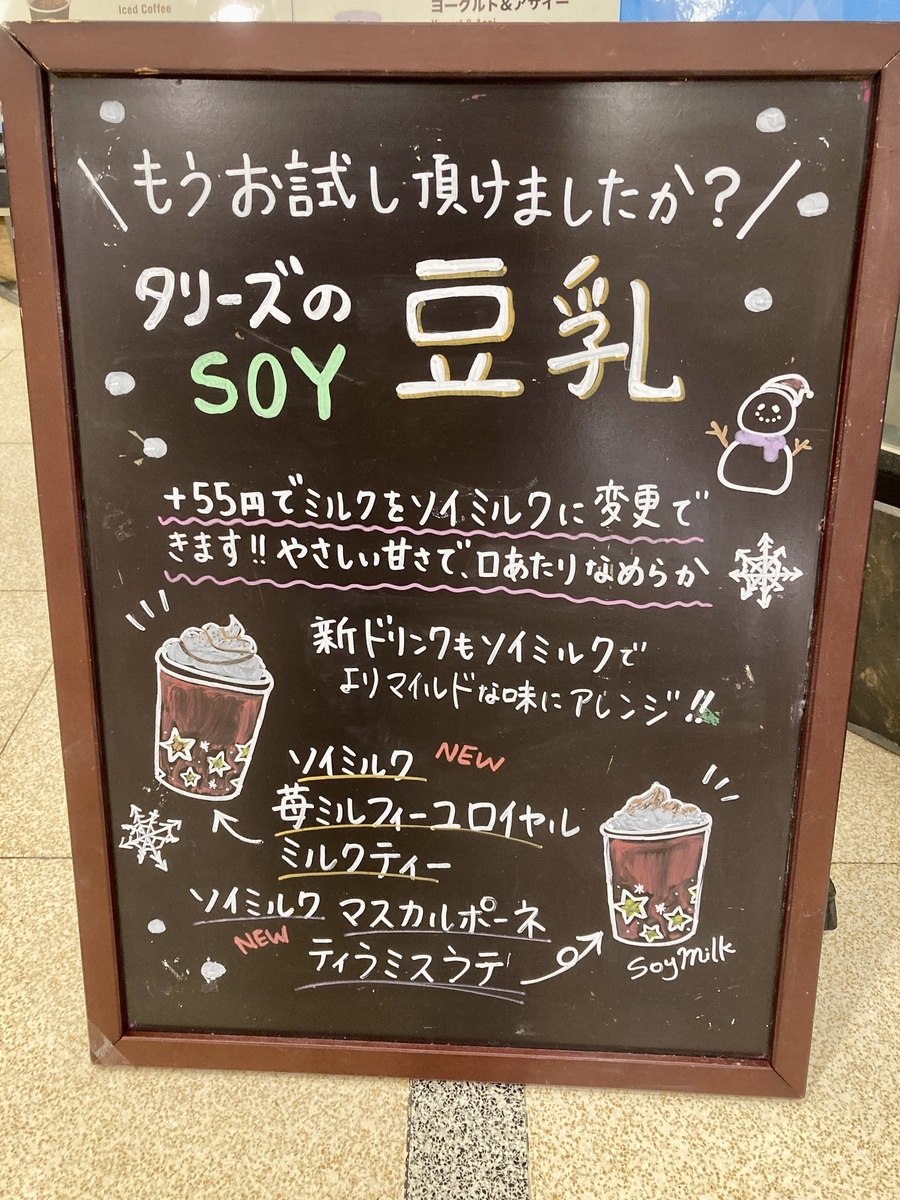 Iced Coffee
ヨーグルト&アサイー
\もうお試し頂けましたか?/
タリーズの
SOY
豆乳
+55円でミルクをソイミルクに変更で
きます!!やさしい甘さで、口あたりなめらか
新ドリンクもソイミルクで
よりマイルドな味にアレンジ!!
ソイミルク NEW
苺ミルフィーユロイヤル
ミルクティー
ソイミルク マスカルポーネ
NEW ティラミスラテ
Soy Milk